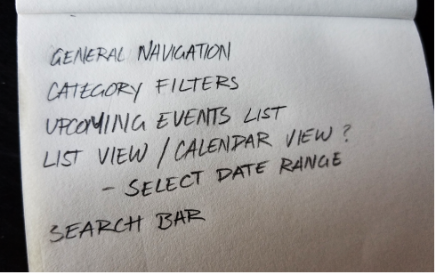 GENERAL NAVIGATION
CATEGORY FILTERS
UPCOMING EVENTS LIST
LIST VIEW / CALENDAR VIEW ?
- SELECT DATE RANGE
SEARCH BAR